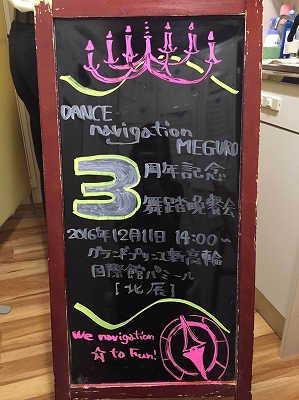 DANCE
navigation
MEGURO
3周年記念
舞踏晩餐会
2016年12月11日 14:00~
グランドプリンス新高輪
国際館パミール
[北辰]
we navigation
☆ to Fun!